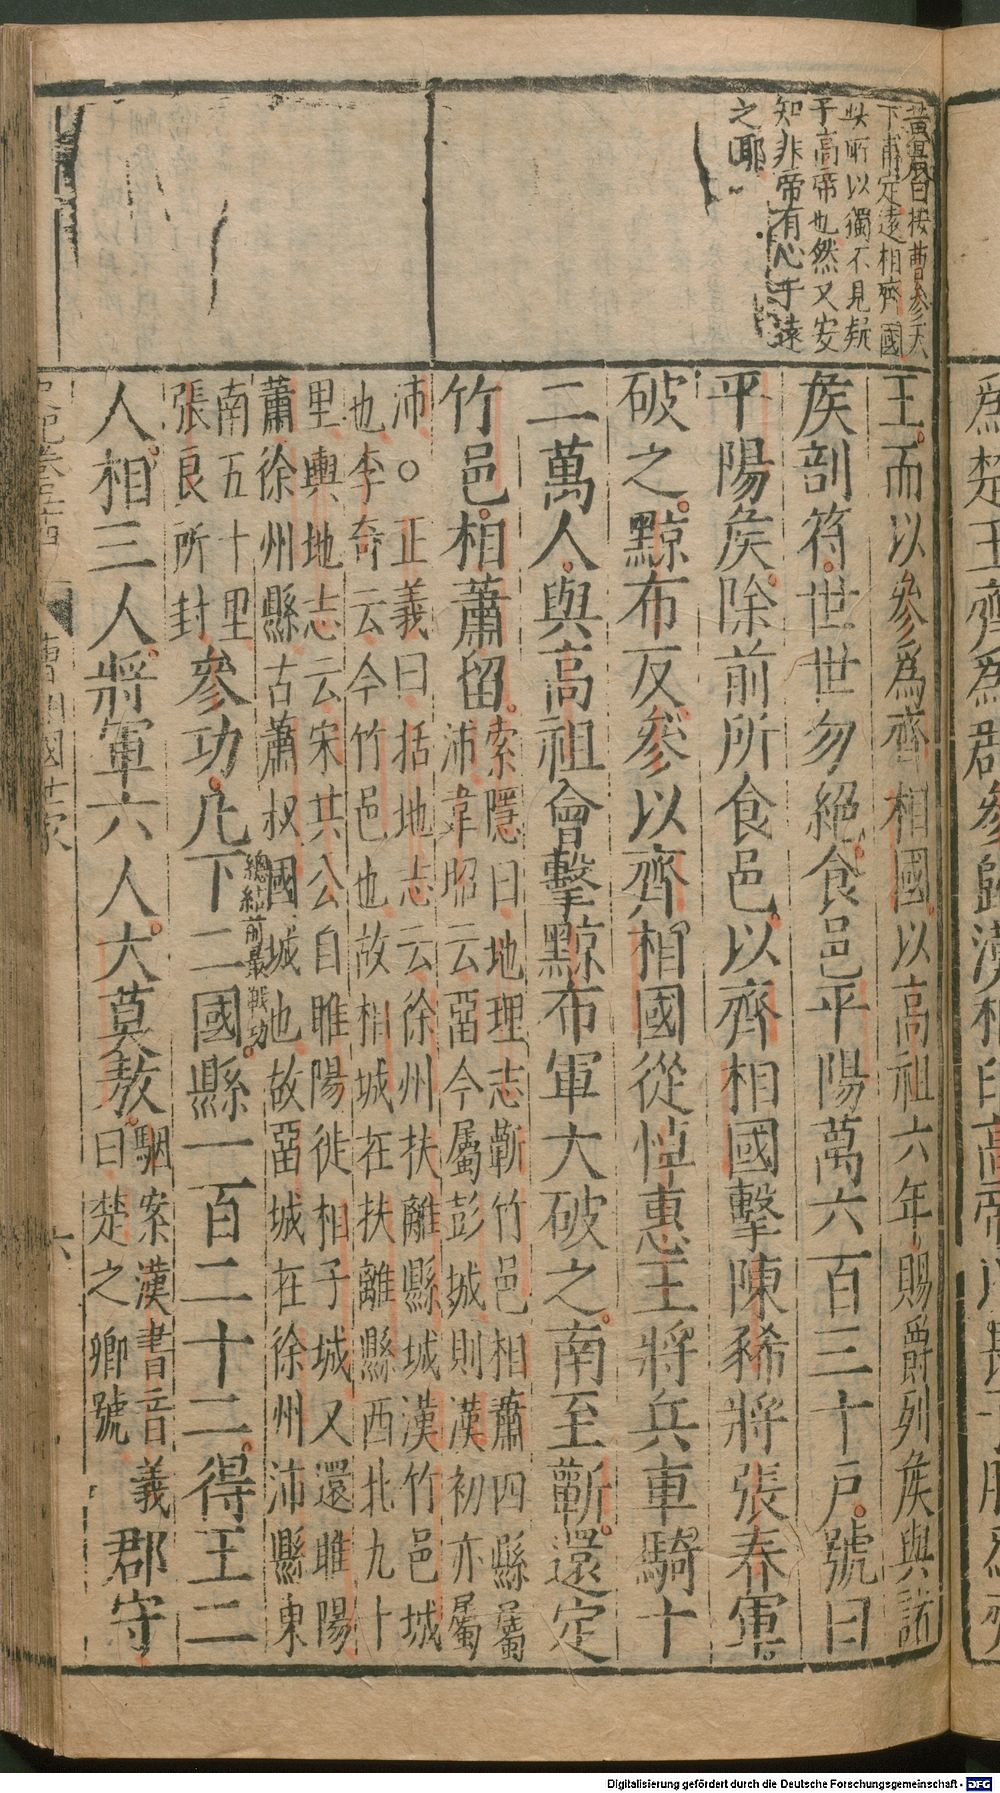 黃震曰按曹參天
下甫定遠相齊國
此所以獨不見疑
于高帝也然又安
知非帝有心于遠
之耶
王而以參爲齊相國以高祖六年賜爵列矦與諸
矦剖符世世勿絕食邑平陽萬六百三十戶號曰
平陽矦除前所食邑以齊相國擊陳豨將張春軍
破之黥布反參以齊相國從悼惠王將兵車騎十
二萬人與高祖會擊黥布軍大破之南至蘄還定
竹邑相蕭留
索隱曰地理志蘄竹邑相蕭四縣屬
沛韋昭云畱今屬彭城則漢初亦屬
沛○正義曰括地志云徐州扶離縣城漢竹邑城
也李奇云今竹邑也故相城在扶離縣西北九十
里輿地志云宋共公自睢陽徙相子城又還睢陽
蕭徐州縣古蕭叔國城也故畱城在徐州沛縣東
南五十里
張良所封
參功凡下二國縣一百二十二得王二
總結前最戰功
人相三人將軍六人大莫敖
駰案漢書音義
曰楚之卿號
郡守
史記卷五十四
曹相國世家
六
Digitalisierung gefördert durch die Deutsche Forschungsgemeinschaft - DFG